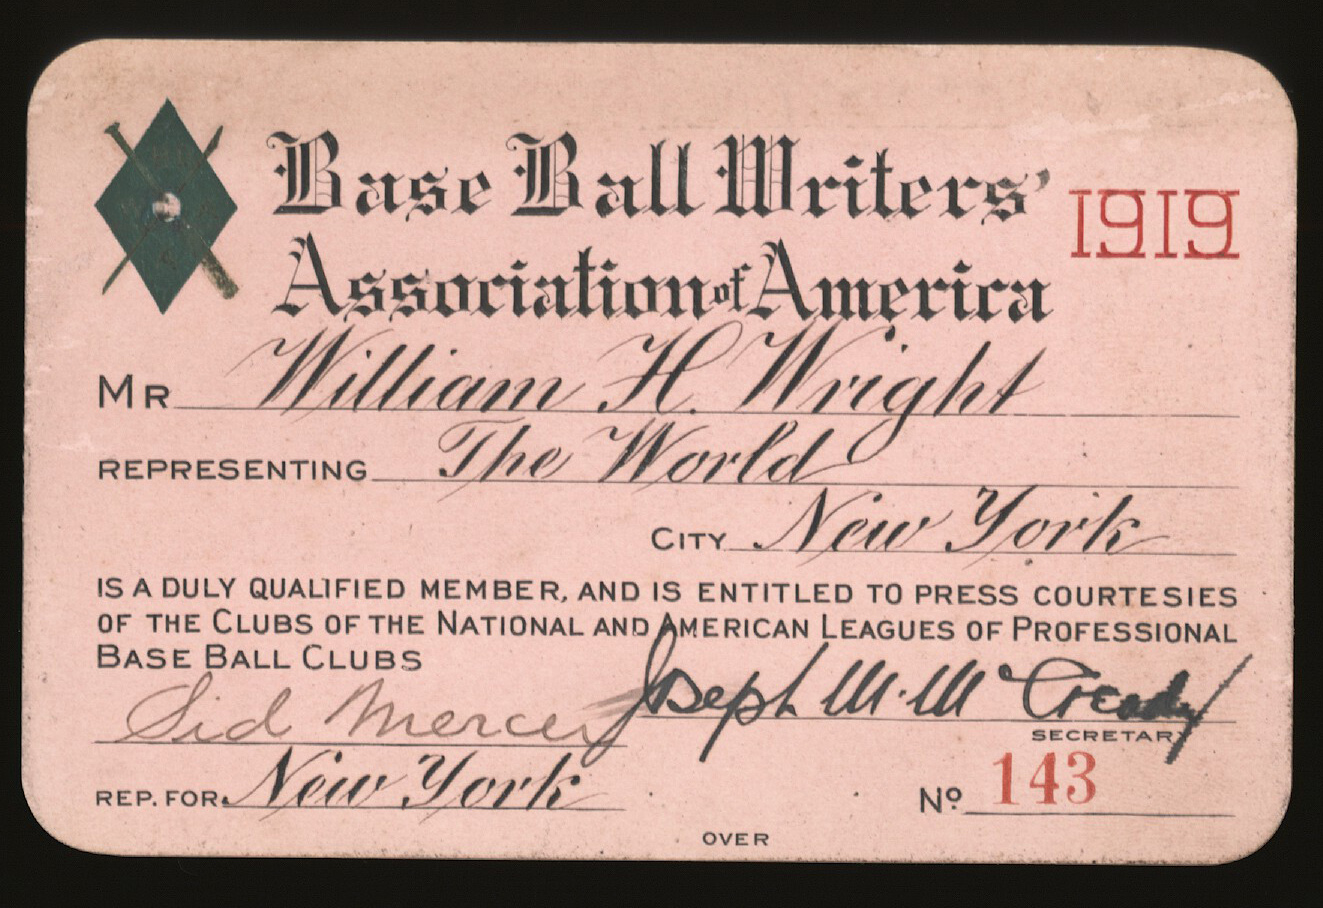 Base Ball Writers' 1919
Association of America
MR William H. Wright
REPRESENTING The World
CITY New York
IS A DULY QUALIFIED MEMBER, AND IS ENTITLED TO PRESS COURTESIES
OF THE CLUBS OF THE NATIONAL AND AMERICAN LEAGUES OF PROFESSIONAL
BASE BALL CLUBS
Sid Mercer Joseph M. McCready
SECRETARY
REP. FOR New York No 143
OVER